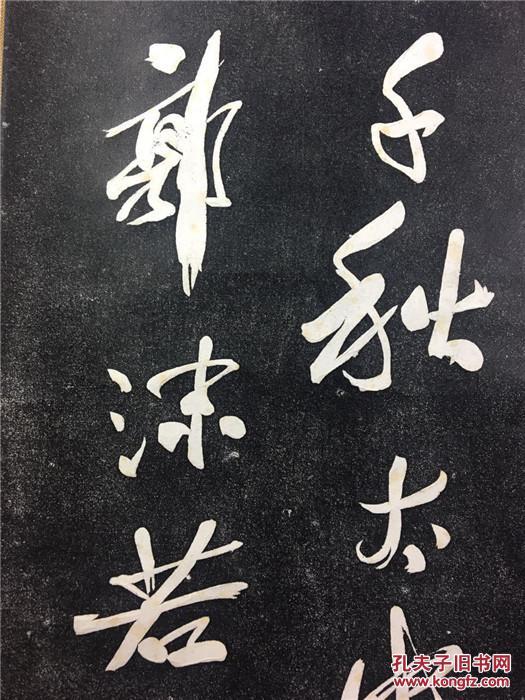 千秋太史
郭沫若
孔夫子旧书网
www.kongfz.com